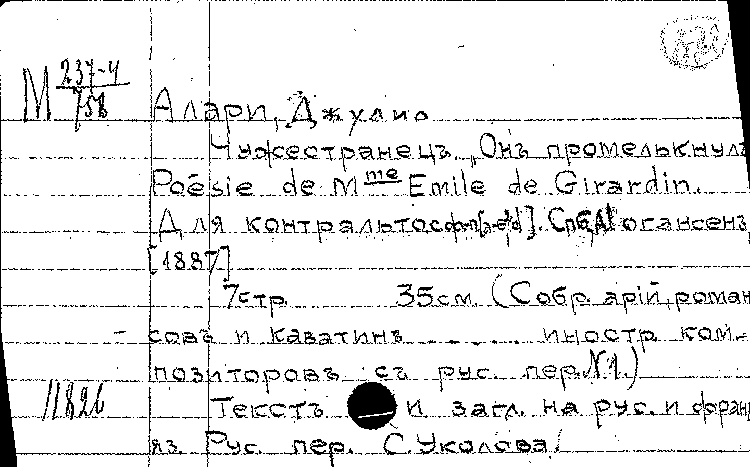 М 237-4
758
Алари, Джулио
Чужестранецъ „Онъ промелькнулъ
Poésie de Mme Emile de Girardin.
Для контральто с ф-п [a-e²]. СПб, А. Иогансенъ,
[1887]
7 стр. 35 см. (Собр. арій, роман-
совъ и каватинъ ........ иностр. ком-
позиторовъ съ рус. пер. №1.)
11826
Текстъ и загл. на рус. и франц.
яз. Рус. пер. С. Уколова.